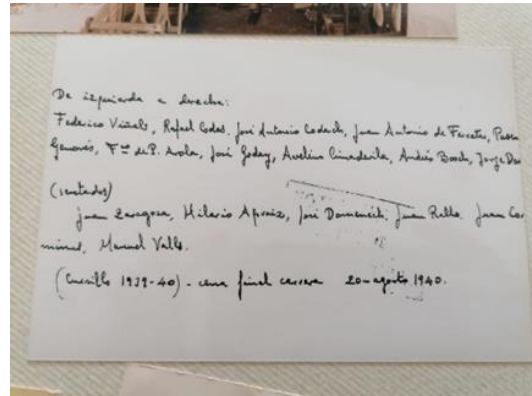 De izquierda a derecha:
Federico Viñals, Rafael Codas, José Antonio Coderch, Juan Antonio de Ferrater,
Genovés, Fco de P. José Goday, Avelino Andrés Bosch, Jorge
(sentados)
Juan Zaragoza, Hilario Apraiz, José Domenech, Juan Rillo, Juan
Manuel Valls.
(Cursillo 1939-40) - cena final carrera 20-agosto 1940.